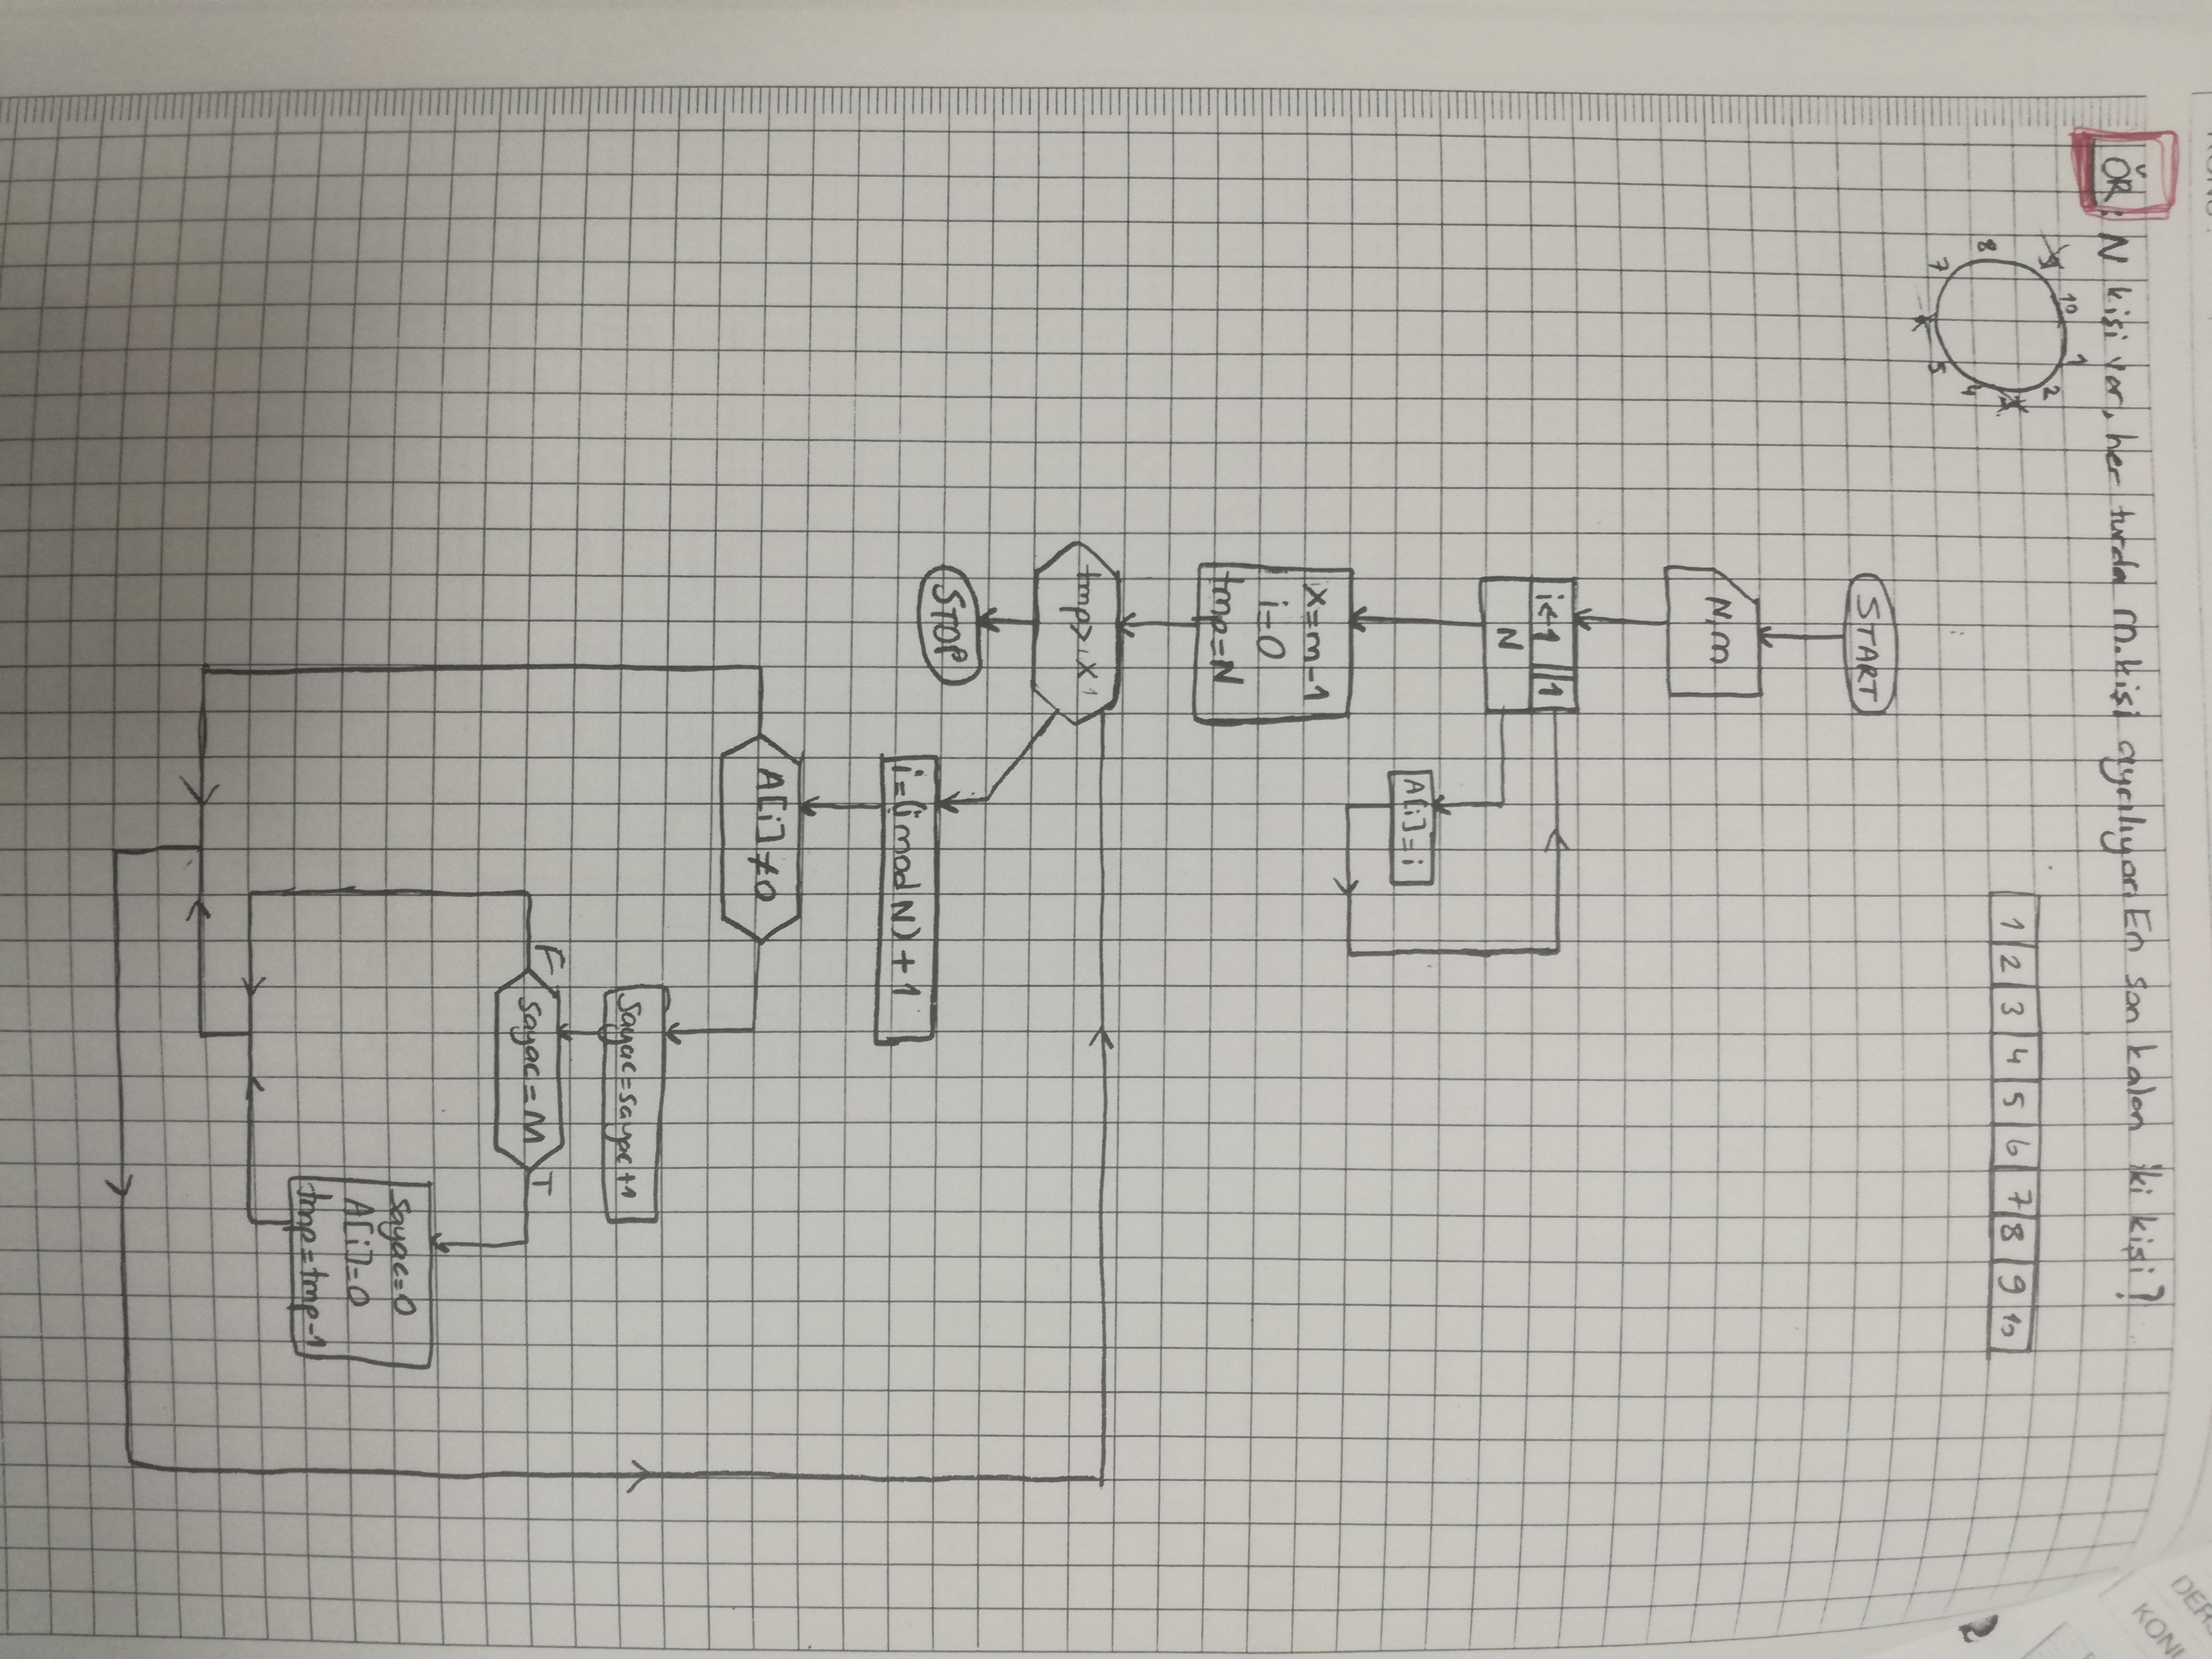 ÖR: N kişi var, her turda m.kişi ayrılıyor. En son kalan iki kişi?
10 1 2
4
5
7
8
1 2 3 4 5 6 7 8 9 10
START
N, m
i←1 1
N
A[i]=i
x=m-1
i=0
tmp=N
tmp> x
STOP
i=(i mod N) + 1
A[i]≠0
Sayac=sayac+1
F sayac=M T
Sayac=0
A[i]=0
tmp=tmp-1
DERS
KONU
2